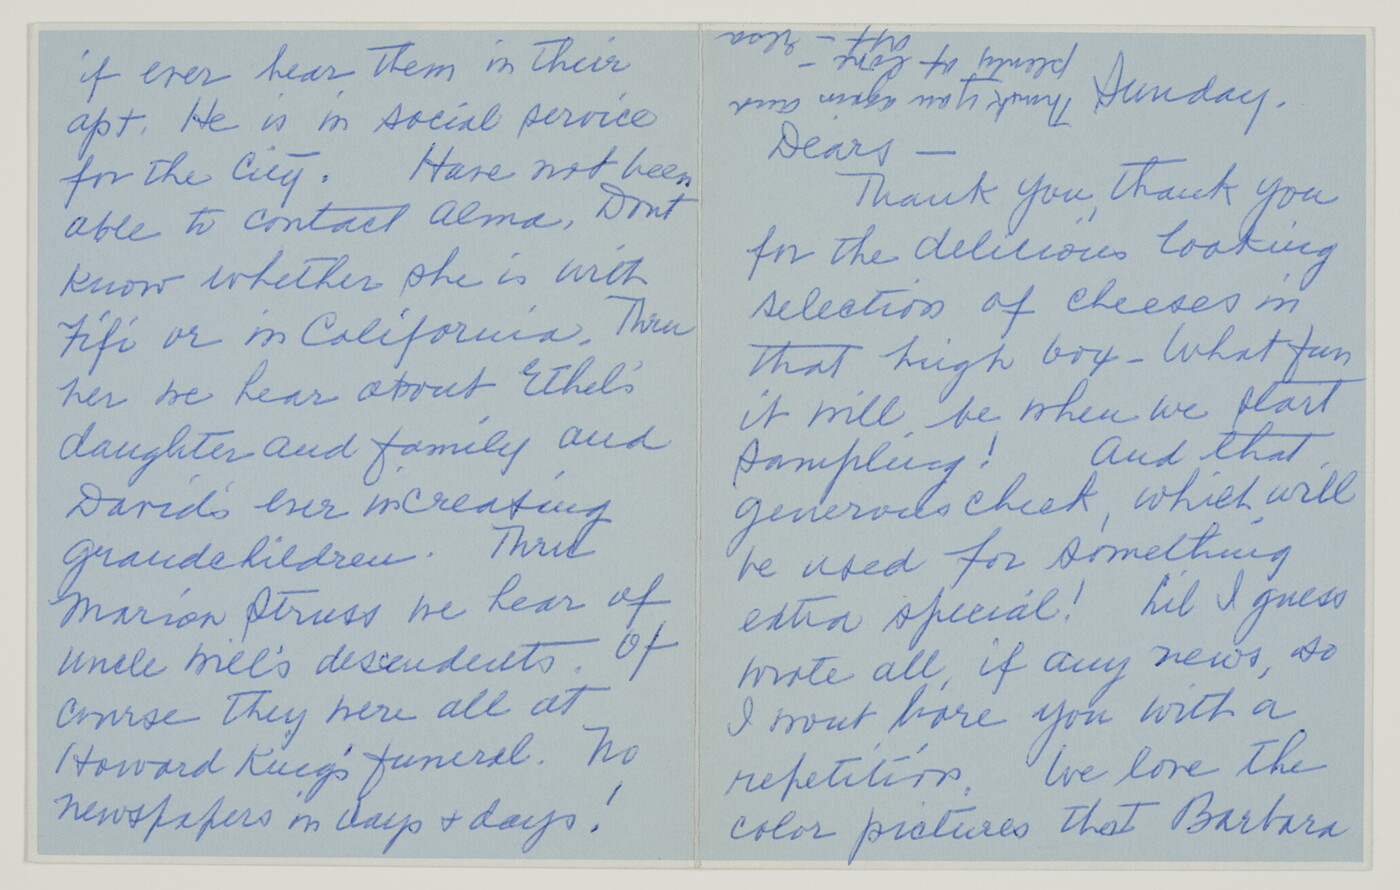 Sunday.
Dears —
Thank you, thank you
for the delicious looking
selection of cheeses in
that huge box - What fun
it will be when we start
sampling! And that
generous check, which will
be used for something
extra special! Lil I guess
wrote all, if any news, so
I wont bore you with a
repetition. We love the
color pictures that Barbara
if ever hear them in their
apt. He is in social service
for the City. Have not been
able to contact Alma. Dont
know whether she is with
Fifi or in California. Thru
her we hear about Ethel's
daughter and family and
David's ever increasing
grandchildren. Thru
Marion Struss we hear of
Uncle Will's descendents. Of
course they were all at
Howard King's funeral. No
newspapers in days & days!
Thank you again and
plenty of love -